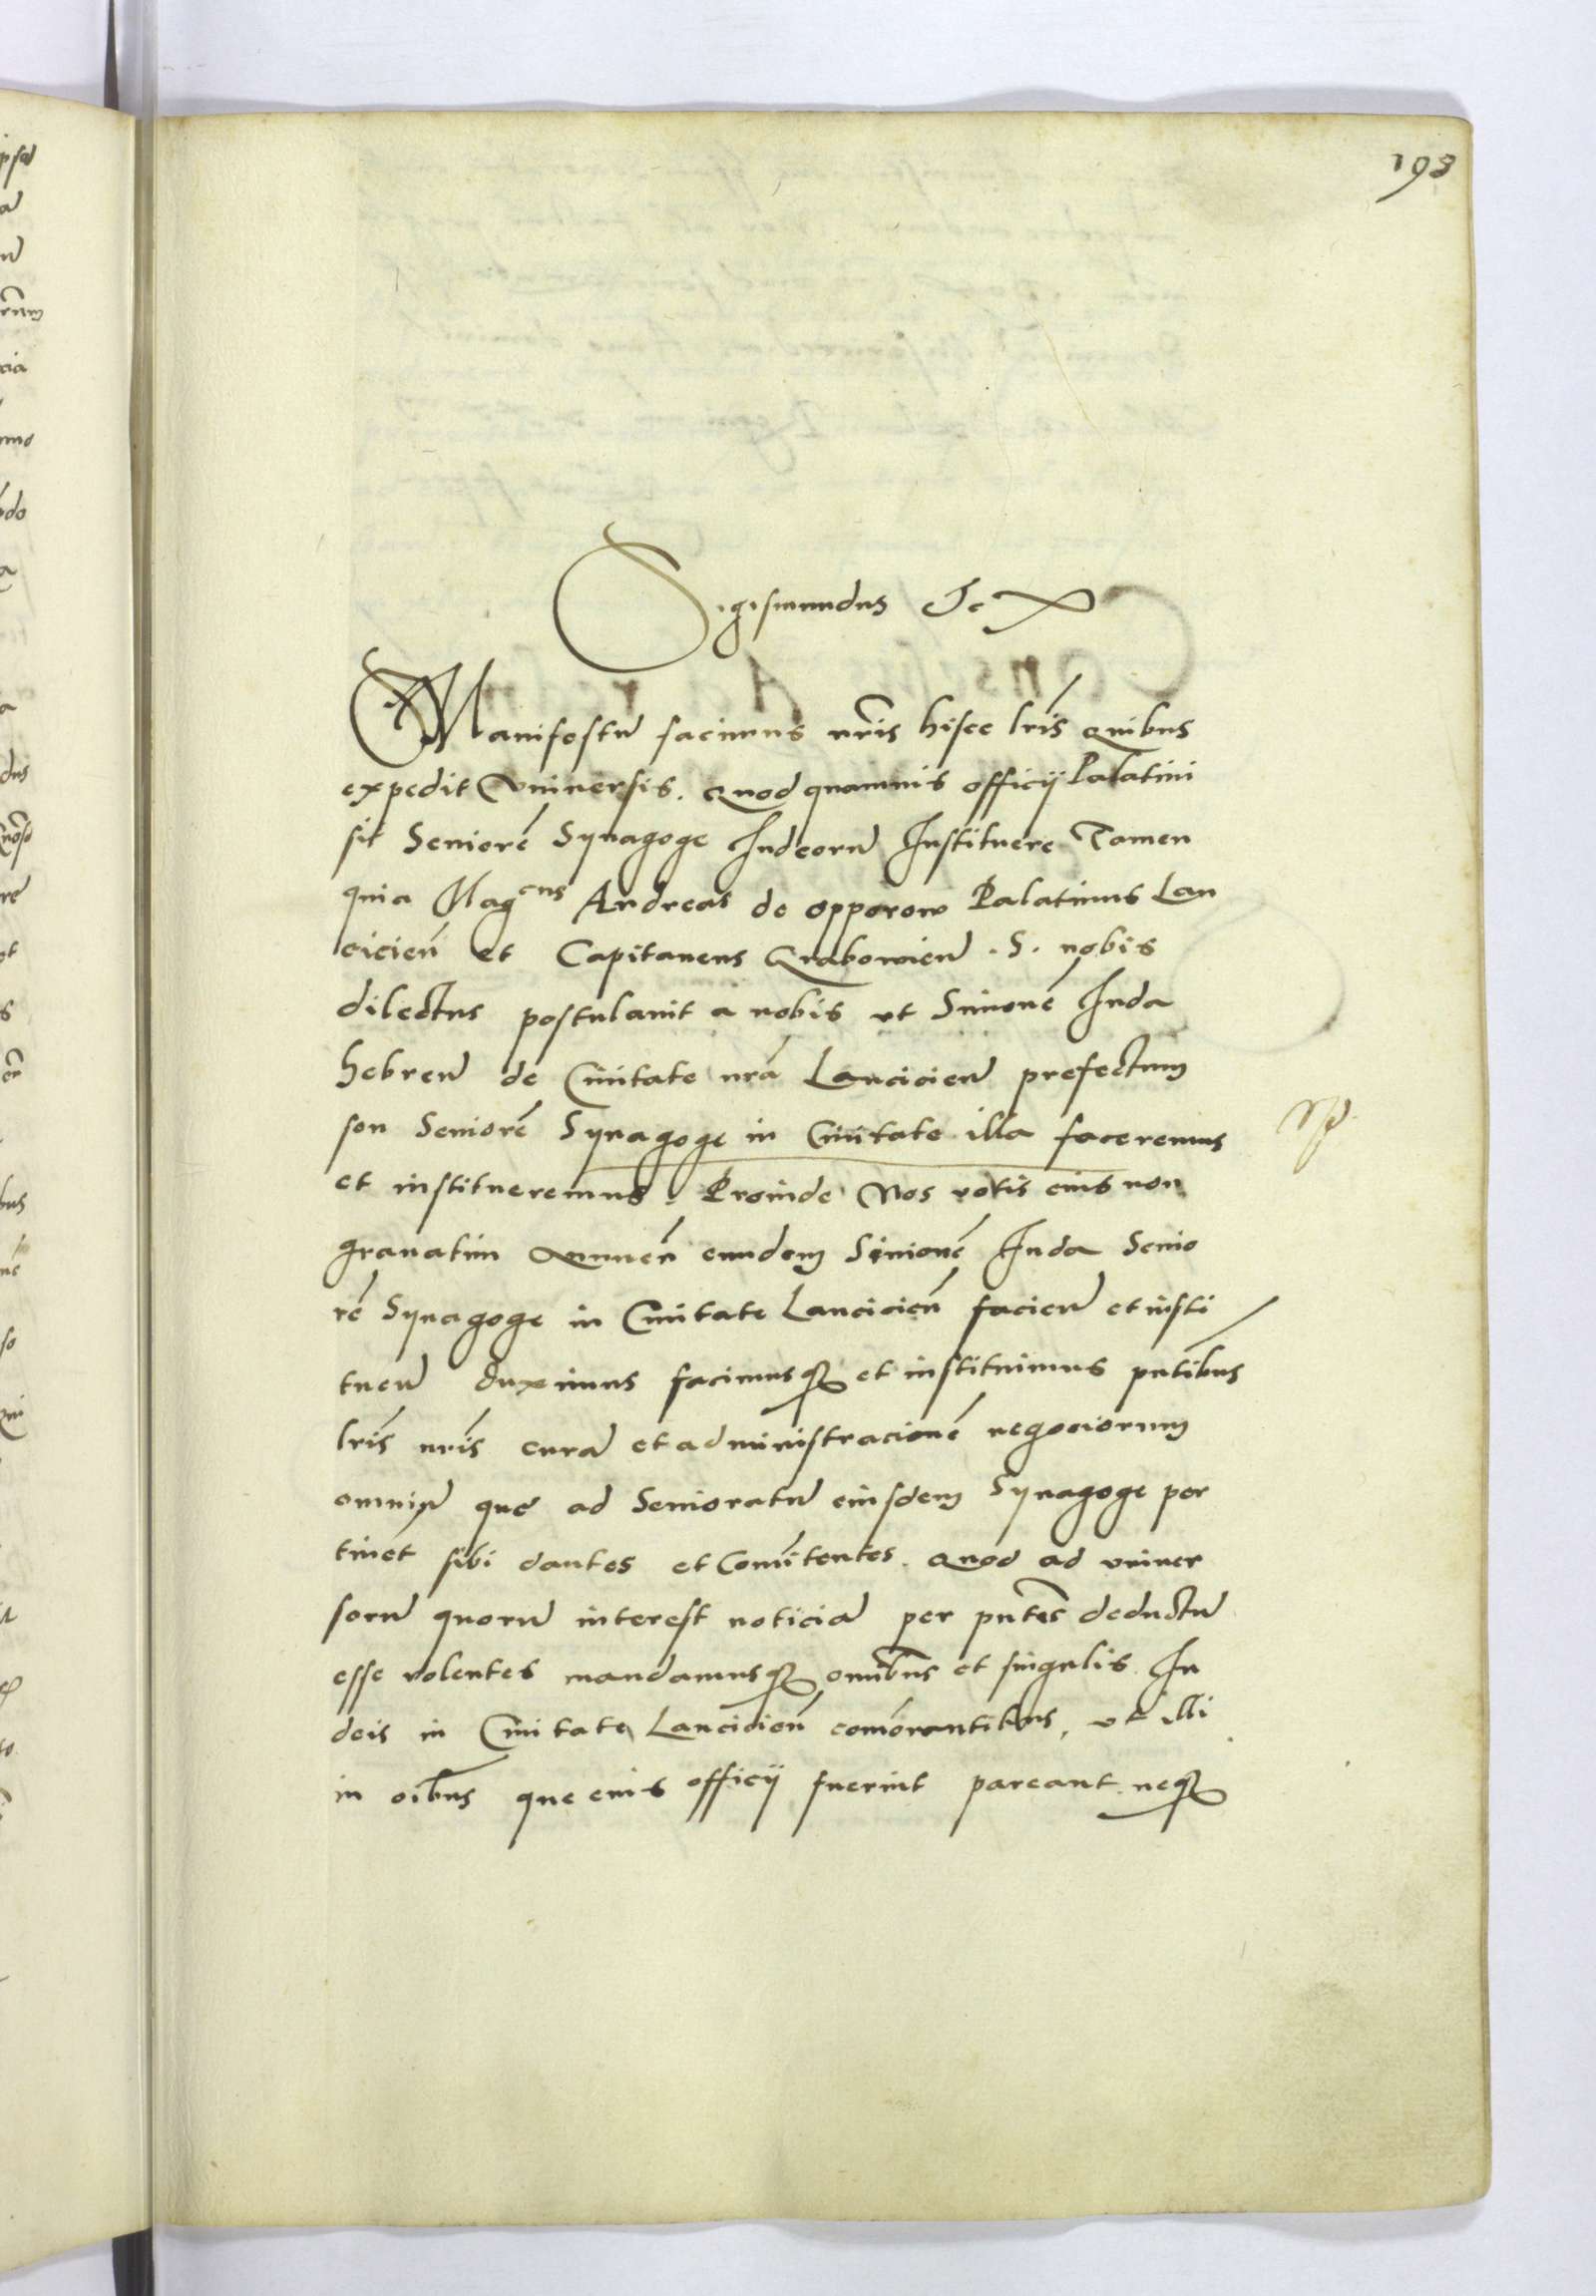 198
Sigismundus Etc
Manifestu̅ facimus nr̅is hisce lr̅is Quibus
expedit Vniuersis. Quod quamuis officij Palatini
sit Seniore̅ Synagoge Judeoru̅ Instituere Tamen
quia Mag^cus Andreas de opporow Palatinus Lan
cicien̅ et Capitaneus Grabowien̅ .S. nobis
dilectus postulauit a nobis vt Simone̅ Juda
hebreu̅ de Ciuitate nr̅a Lancicien̅ prefectum
seu Seniore̅ Synagoge in Ciuitate illa faceremus
et institueremus. Proinde Nos votis eius non
grauatim eundem Simone̅ Juda Senio
re̅ Synagoge in Ciuitate Lancicien̅ facien̅ et insti
tuen̅ duximus facimusq et instituimus pn̅tibus
lr̅is nr̅is cura̅ et administracione̅ negociorum
omniu̅ que ad Senioratu̅ eiusdem Synagoge per
tinet sibi dantes et Com̅itentes. Quod ad vniuer
soru̅ quoru̅ interest noticia̅ per pn̅tes deductu̅
esse volentes mandamusq omnibus et singulis Ju
deis in Ciuitate Lancicien̅ com̅orantibus, vt illi
in oi̅bus que eius officij fuerint pareant neq